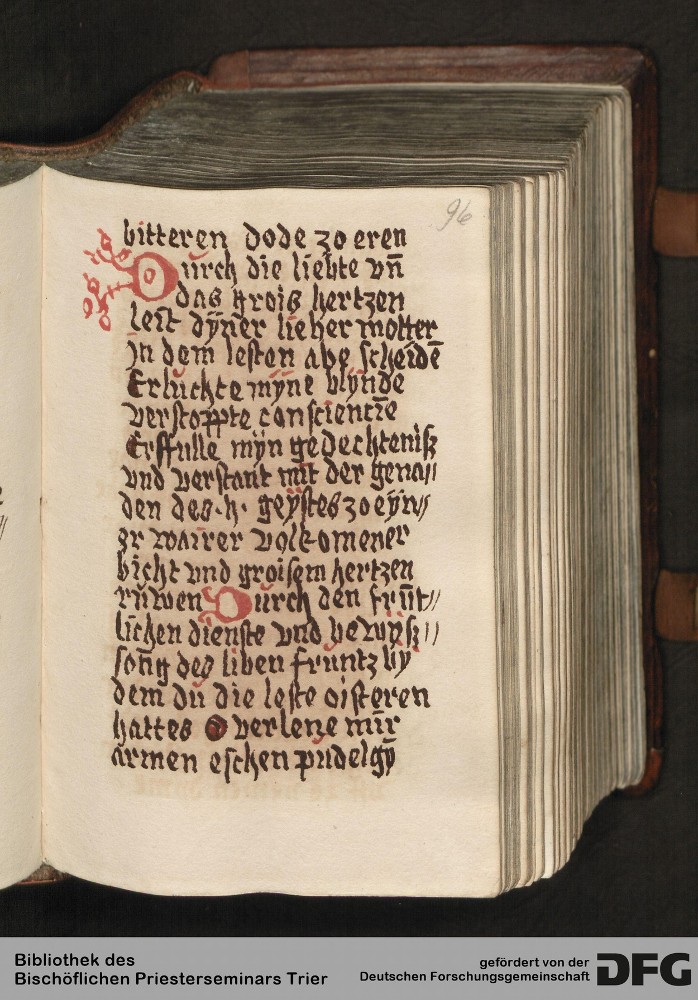 96
bitteren dode zo eren
Durch die liebte vn̄
das grois hertzen
leit dÿner lieber motter
Jn dem lesten abe scheidē
Erluchte mÿne blÿnde
verstoppte conscientie
Erffulle mÿn gedechteniß
vnd verstant mit der gena//
den des .h. geÿstes zo eÿn//
zr wairer volkomener
bicht vnd groisem hertzen
ruwen Durch den frūt//
lichen dienste vnd bewÿß//
song des liben fruntz bÿ
dem du die leste oisteren
hattes O verlene mir
armen eschen pudelgÿ
Bibliothek des
Bischöflichen Priesterseminars Trier
gefördert von der
Deutschen Forschungsgemeinschaft
DFG